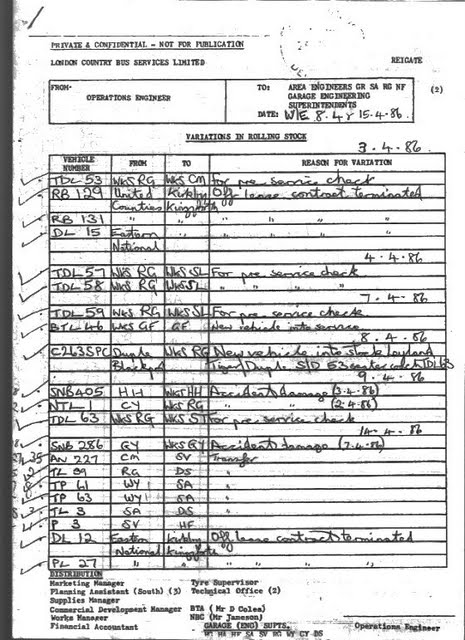 PRIVATE & CONFIDENTIAL - NOT FOR PUBLICATION
LONDON COUNTRY BUS SERVICES LIMITED REIGATE
FROM- OPERATIONS ENGINEER
TO: AREA ENGINEERS GR SA RG NF (2)
GARAGE ENGINEERING
SUPERINTENDENTS
DATE: W/E 8.4 & 15.4.86.
VARIATIONS IN ROLLING STOCK
3.4.86.
VEHICLE NUMBER FROM TO REASON FOR VARIATION
TDL 53 WKS RG WKS CM For pre service check
RB 129 United Kirkby Off lease contract terminated
Counties Kingsforth
RB 131 " " " " "
DL 15 Eastern " " " "
National
4.4.86
TDL 57 WKS RG WKS SL For pre service check
TDL 58 WKS RG WKS SL " " " "
7.4.86
TDL 59 WKS RG WKS SL For pre service check
BTL 46 WKS GF GF New vehicle into service
8.4.86
C263SPC Duple WKS RG New vehicle into stock Leyland
Blackpool Tiger/Duple S/D 53 seater coach TDL 63
9.4.86
SNB405 HH WKS HH Accident damage (3.4.86)
NTL 1 CY WKS RG " " (2.4.86)
TDL 63 WKS RG WKS ST For pre service check
14.4.86
SNB 286 GY WKS GY Accident damage (7.4.86)
AN 227 CM SV Transfer
TL RG DS "
TP 61 WY SA "
TP 63 WY SA "
TL 3 SA DS "
P 3 SV HF "
DL 12 Eastern Kirkby Off lease contract terminated
National Kingsforth
PL 27 " " " " "
DISTRIBUTION
Marketing Manager Tyre Supervisor
Planning Assistant (South) (3) Technical Office (2)
Supplies Manager
Commercial Development Manager BTA (Mr D Coles)
Works Manager NBC (Mr Jameson)
Financial Accountant GARAGE (ENG) SUPTS. Operations Engineer
HA HF SA SV RG WY CY DS